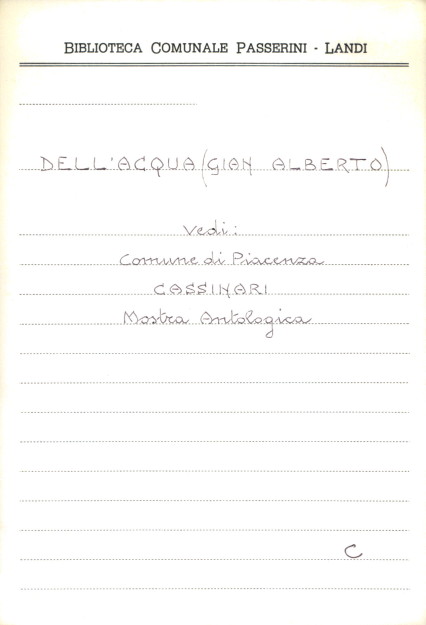 BIBLIOTECA COMUNALE PASSERINI - LANDI
DELL'ACQUA (GIAN ALBERTO)
Vedi:
Comune di Piacenza
CASSINARI
Mostra Antologica
C